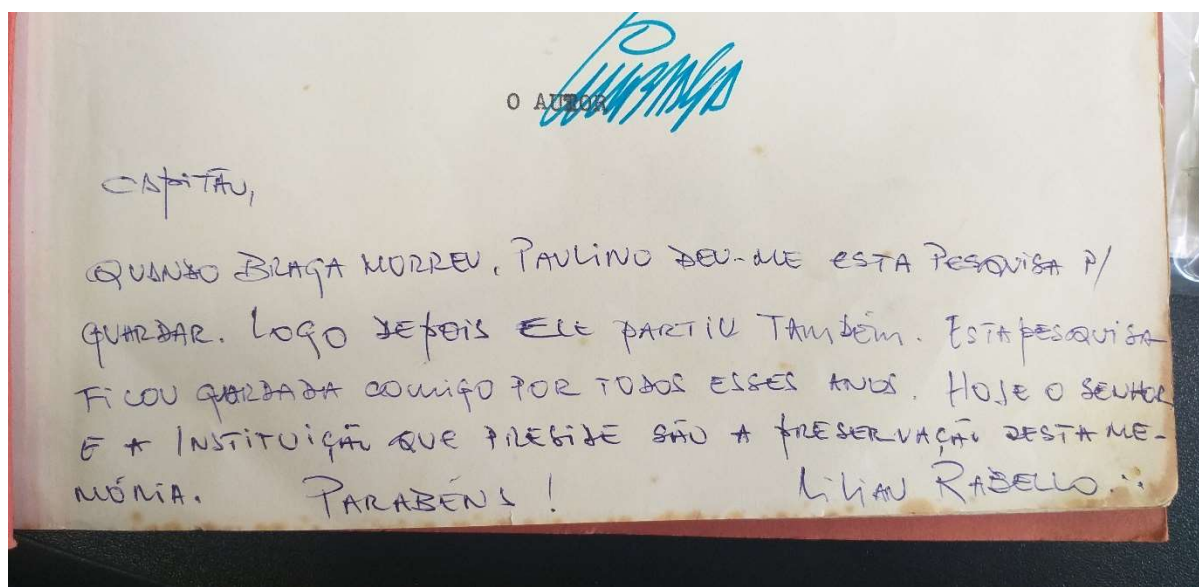 O AUTOR
CAPITÃO,
QUANDO BRAGA MORREU, PAULINO DEU-ME ESTA PESQUISA P/
GUARDAR. LOGO DEPOIS ELE PARTIU TAMBÉM. ESTA PESQUISA
FICOU GUARDADA COMIGO POR TODOS ESSES ANOS. HOJE O SENHOR
E A INSTITUIÇÃO QUE PRESIDE SÃO A PRESERVAÇÃO DESTA ME-
MÓRIA. PARABÉNS! LILIAN RABELLO.∴